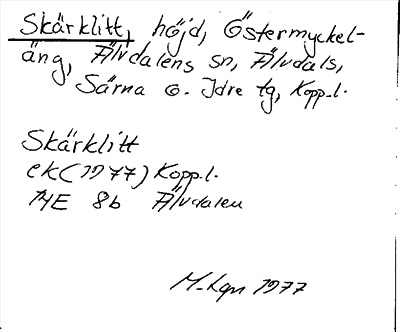 Skärklitt, höjd, Östermyckel-
äng, Älvdalens sn, Älvdals,
Särna o. Idre tg, Kopp.l.
Skärklitt
ek (1977) Kopp.l.
14E 8b Älvdalen
M-Lgn 1977